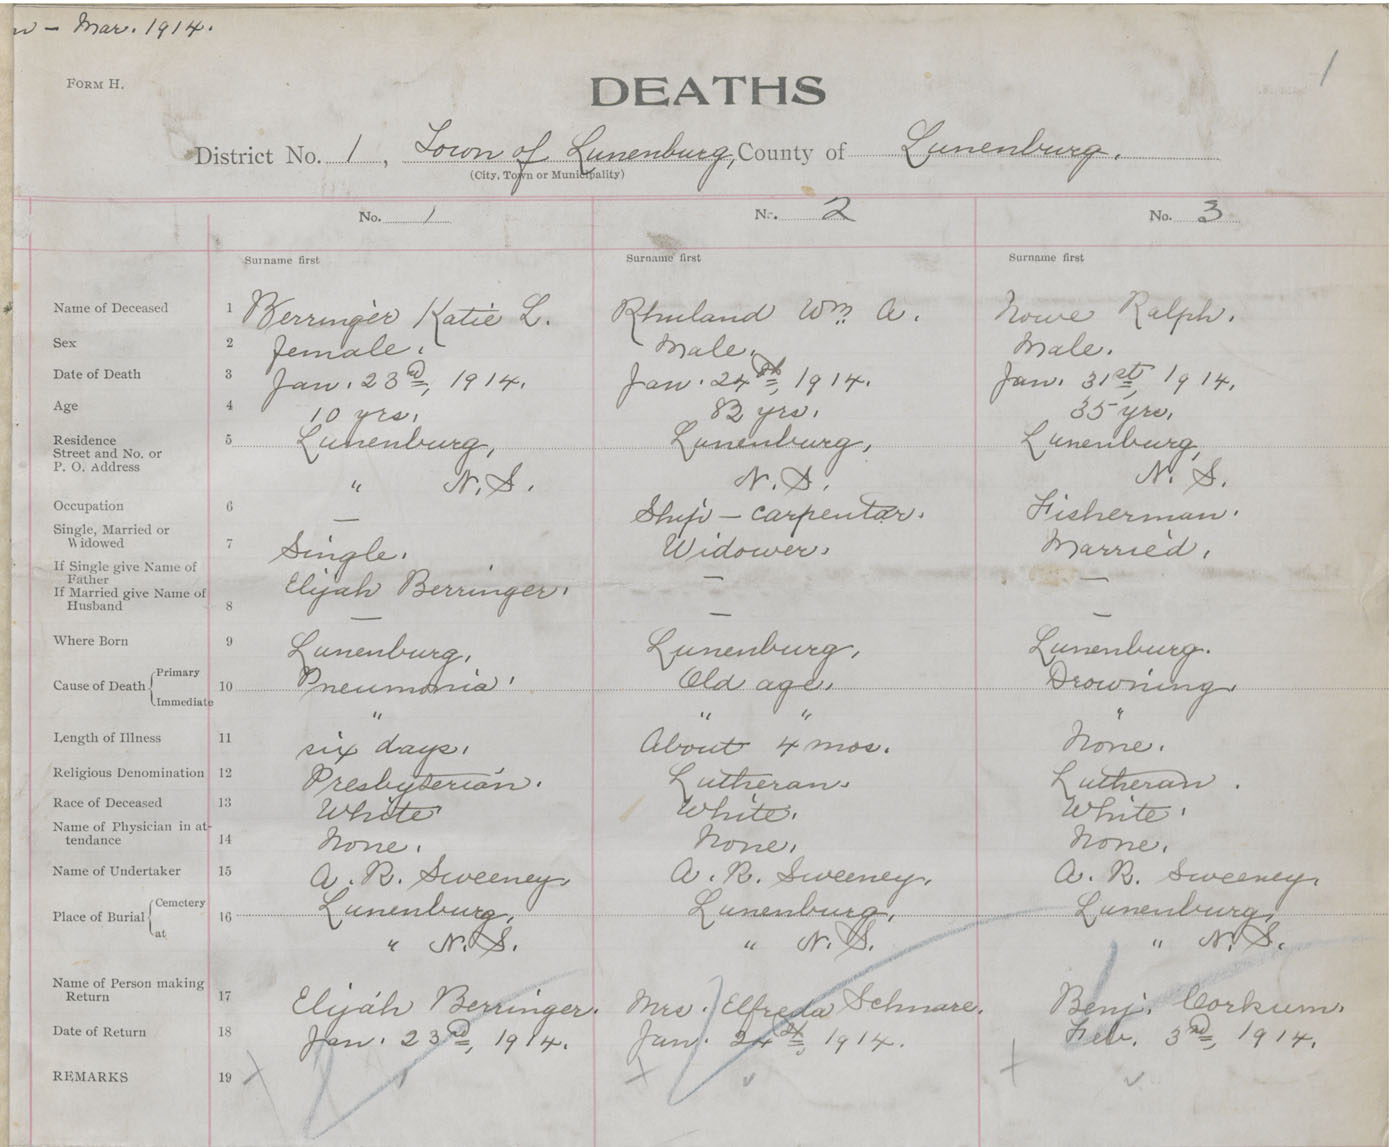 – Mar. 1914.
1
FORM H.
DEATHS
District No. 1, Town of Lunenburg, County of Lunenburg.
(City, Town or Municipality)
No. 1 No. 2 No. 3
Surname first Surname first Surname first
Name of Deceased 1 Berringer Katie L. Rhuland Wm. A. Nowe Ralph.
Sex 2 female. Male. Male.
Date of Death 3 Jan. 23rd, 1914. Jan. 24th, 1914. Jan. 31st, 1914.
Age 4 10 yrs. 82 yrs. 35 yrs.
Residence
Street and No. or 5 Lunenburg, Lunenburg, Lunenburg,
P. O. Address
" N.S. N.S. N.S.
Occupation 6 — Ship-carpenter. Fisherman.
Single, Married or
Widowed 7 Single. Widower. Married.
If Single give Name of
Father Elijah Berringer. — —
If Married give Name of
Husband 8 — — —
Where Born 9 Lunenburg, Lunenburg, Lunenburg.
Cause of Death { Primary
10 Pneumonia. Old age. Drowning.
Immediate " " " "
Length of Illness 11 six days. About 4 mos. None.
Religious Denomination 12 Presbyterian. Lutheran. Lutheran.
Race of Deceased 13 White White. White.
Name of Physician in at-
tendance 14 None. None. None.
Name of Undertaker 15 A. R. Sweeney. A. R. Sweeney. A. R. Sweeney.
Place of Burial { Cemetery
16 Lunenburg, Lunenburg, Lunenburg,
at " N.S. " N.S. " N.S.
Name of Person making
Return 17 Elijah Berringer. Mrs. Elfreda Schnare. Benj. Corkum.
Date of Return 18 Jan. 23rd, 1914. Jan. 24th, 1914. Feb. 3rd, 1914.
REMARKS 19